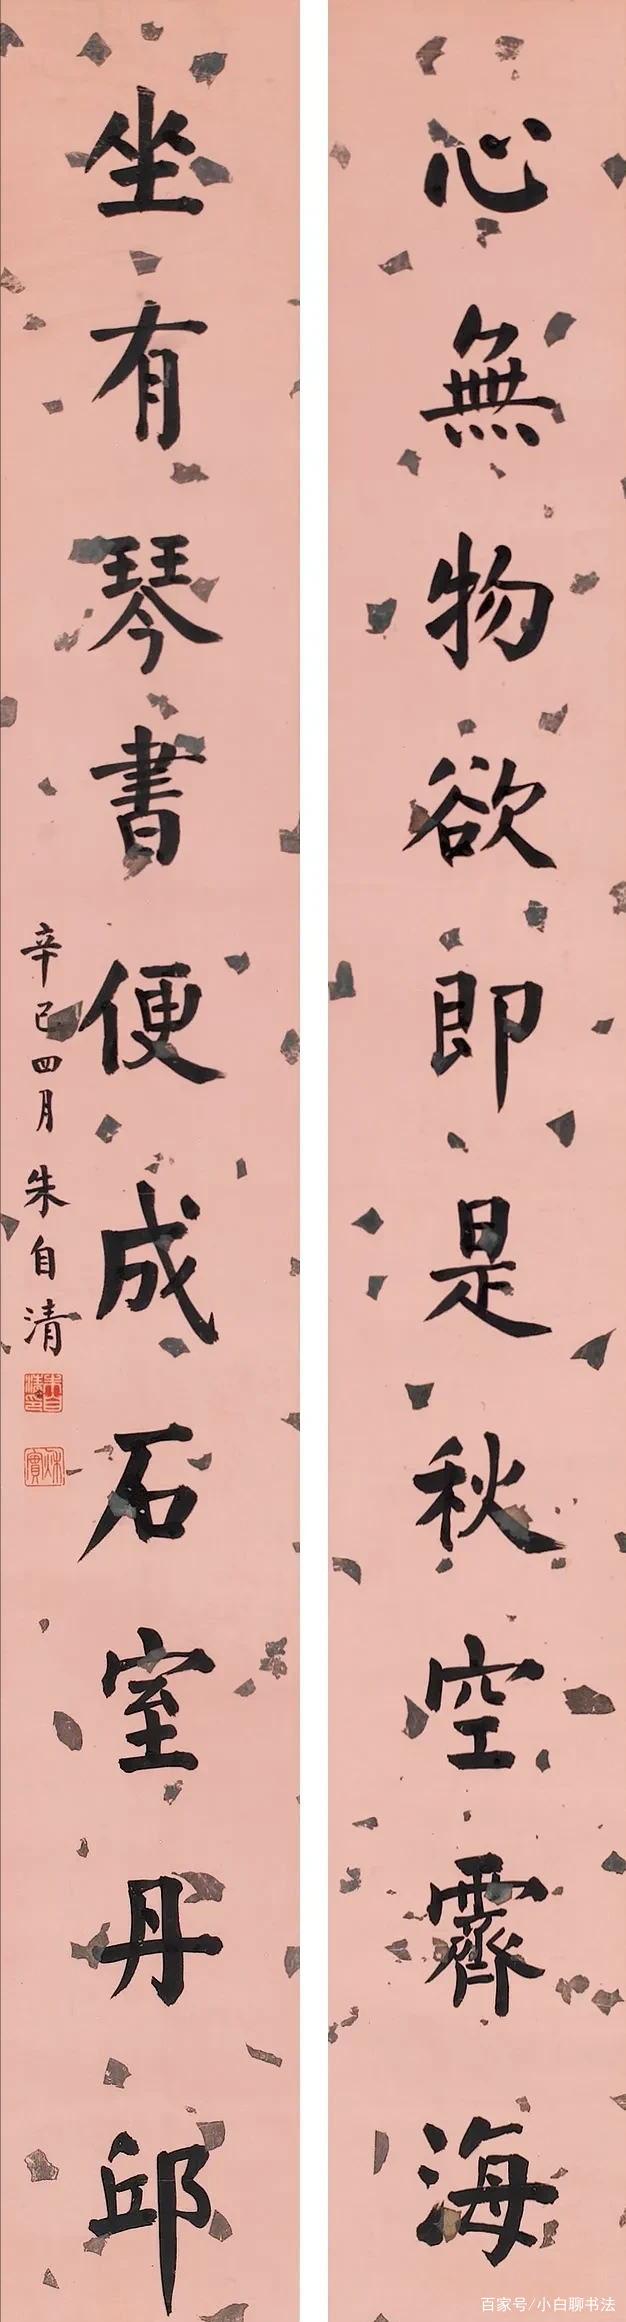 心無物欲即是秋空霽海
坐有琴書便成石室丹邱
辛巳四月 朱自清
朱自清印
秋實
百家号/小白聊书法